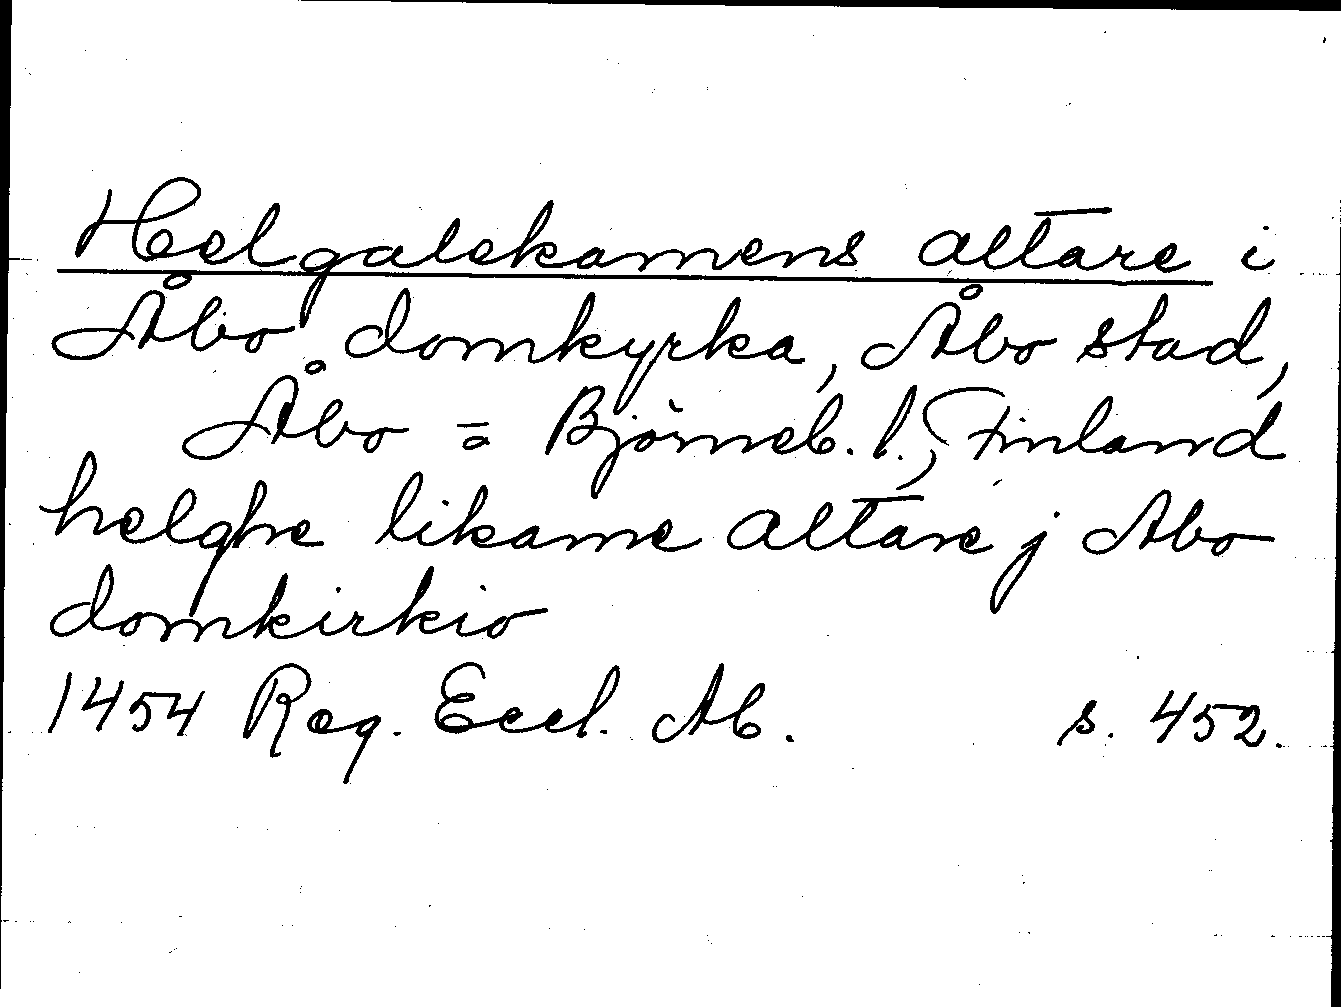 Helgalekamens altare i
Åbo domkyrka, Åbo stad,
Åbo = Björneb. l., Finland
helghe likame altare j Abo
domkirkio
1454 Reg. Eccl. Ab. s. 452.